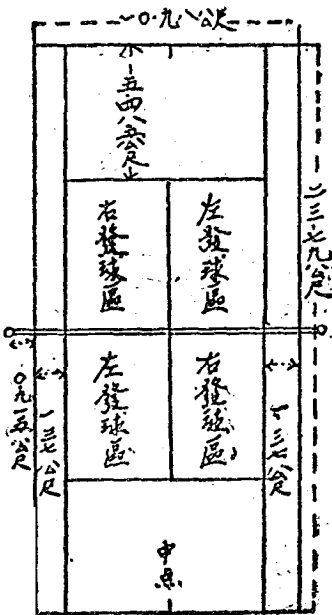 一〇.九八公尺
五.四八五公尺
二三.七九公尺
右發球區
左發球區
左發球區
右發球區
〇.九一五公尺
一.三七公尺
一.三七公尺
中點